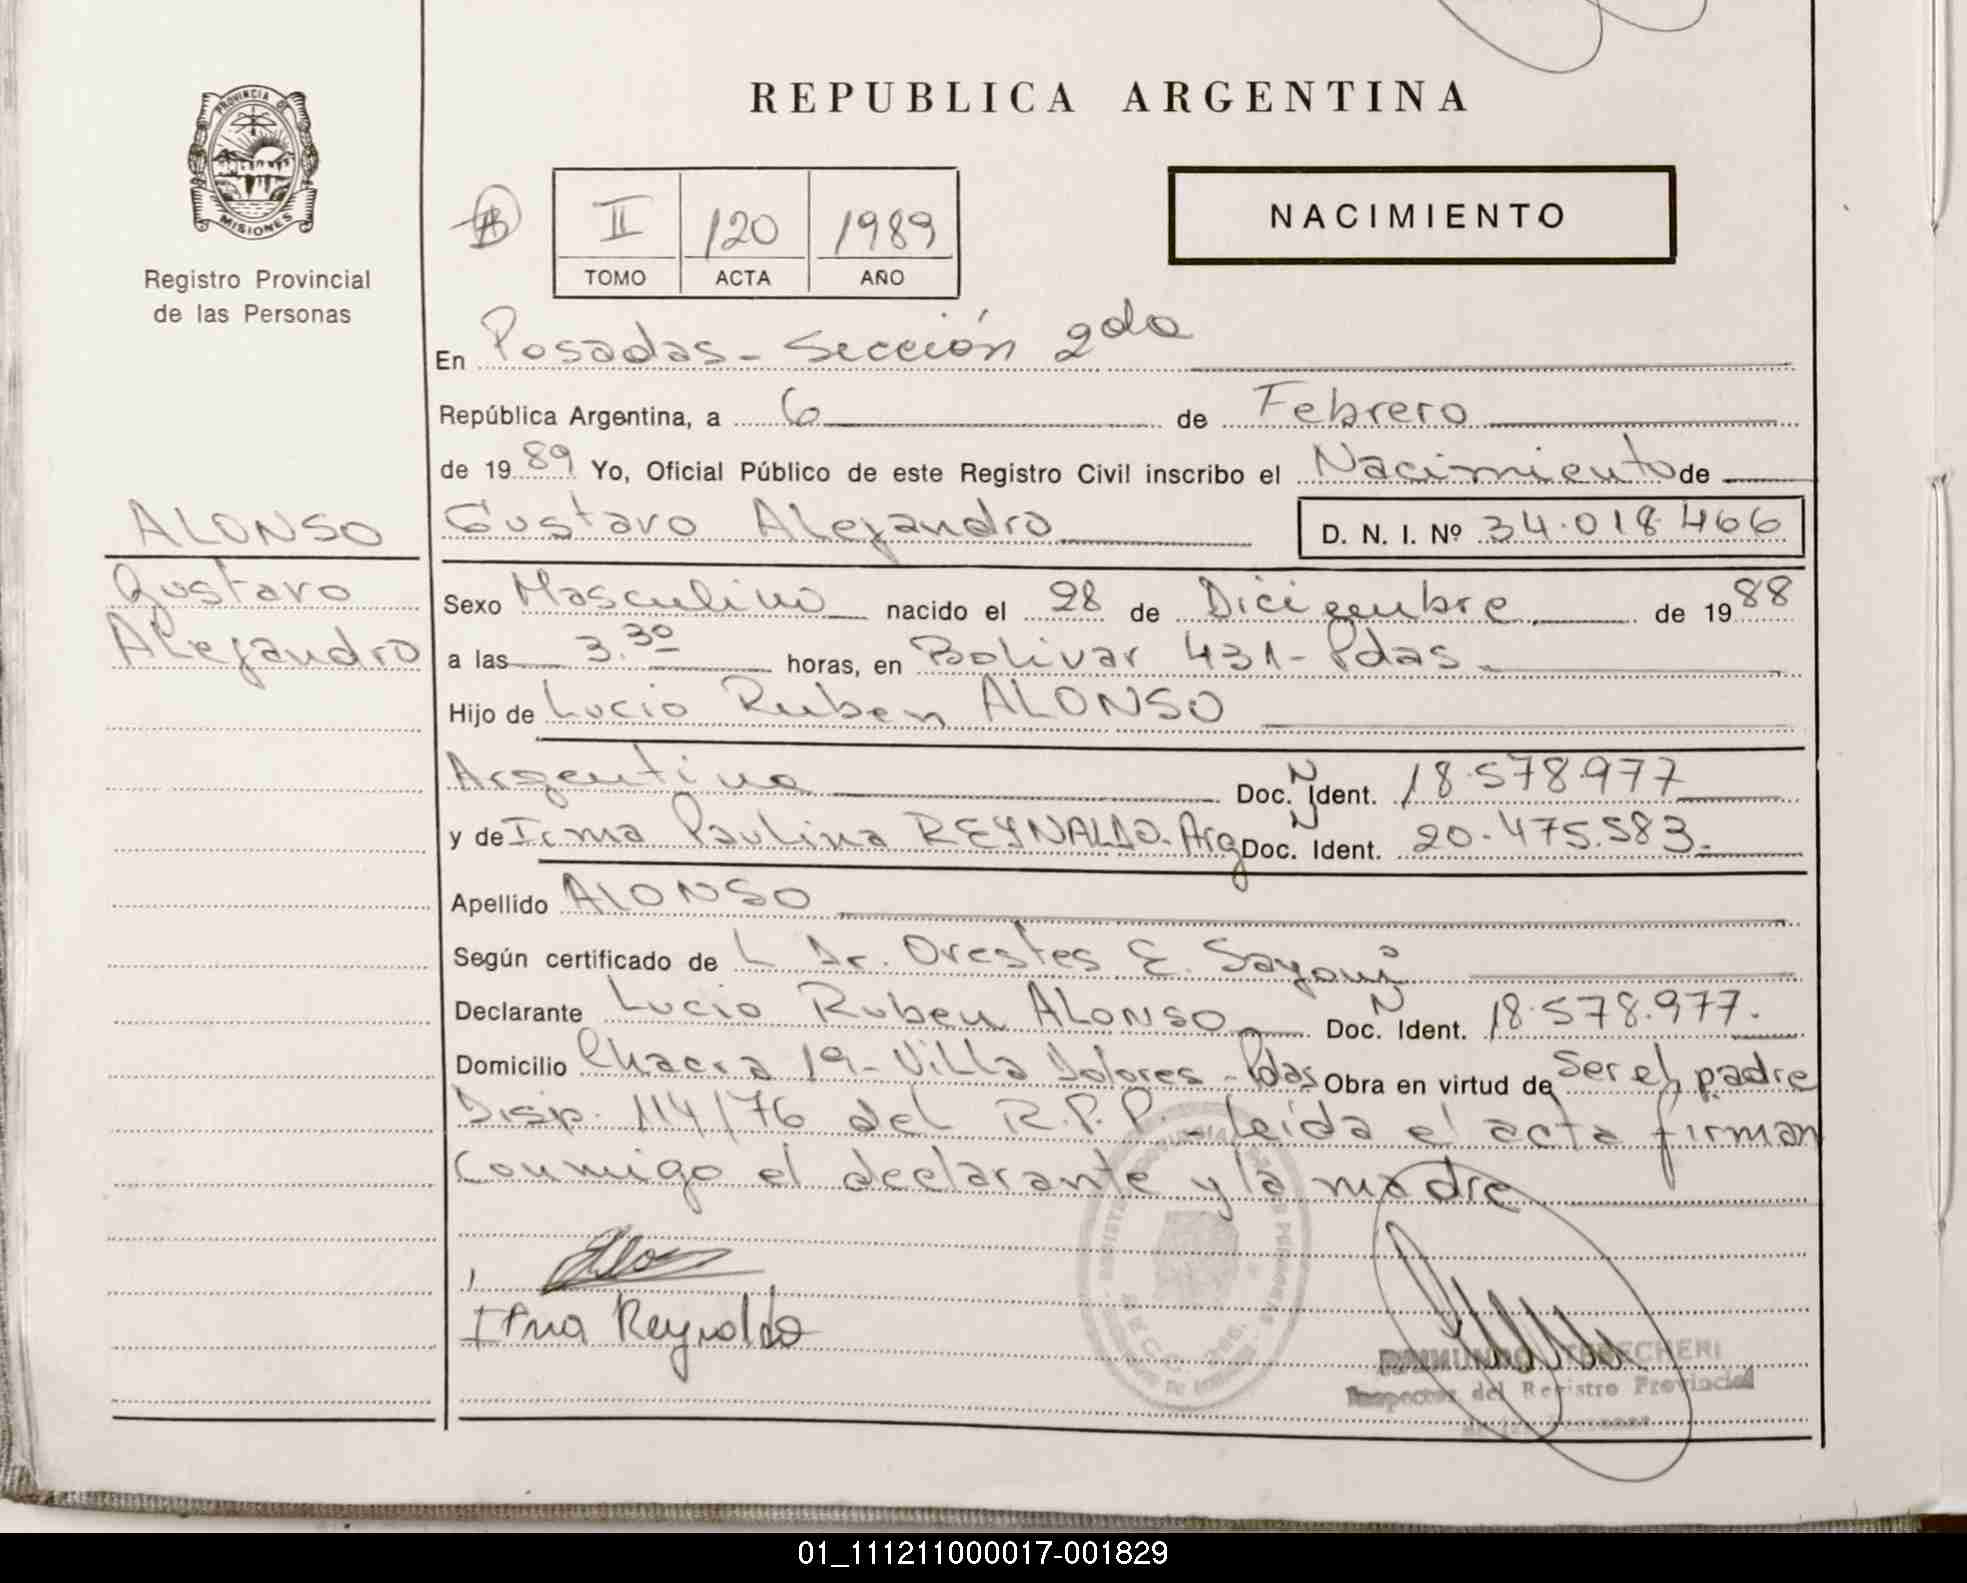 REPUBLICA ARGENTINA
PROVINCIA DE
MISIONES
Registro Provincial
de las Personas
II 120 1989
TOMO ACTA AÑO
NACIMIENTO
En Posadas - Sección 2da
República Argentina, a 6 de Febrero
de 1989 Yo, Oficial Público de este Registro Civil inscribo el Nacimiento de
ALONSO
Gustavo Alejandro D. N. I. Nº 34.018.466
Gustavo
Alejandro
Sexo Masculino nacido el 28 de Diciembre de 1988
a las 3.30 horas, en Bolivar 431 - Pdas
Hijo de Lucio Ruben ALONSO
Argentina Doc. N Ident. 18.578.977
y de Irma Paulina REYNALDO. Arg Doc. N Ident. 20.475.583.
Apellido ALONSO
Según certificado de L Dr. Orestes E.
Declarante Lucio Ruben ALONSO Doc. N Ident. 18.578.977.
Domicilio Chacra 19 - Villa Dolores - Pdas Obra en virtud de Ser el padre
Disp. 114/76 del R.P.P. - leida el acta firman
conmigo el declarante y la madre
Irma Reynoldo
Inspector del Registro Provincial
de las Personas
01_111211000017-001829